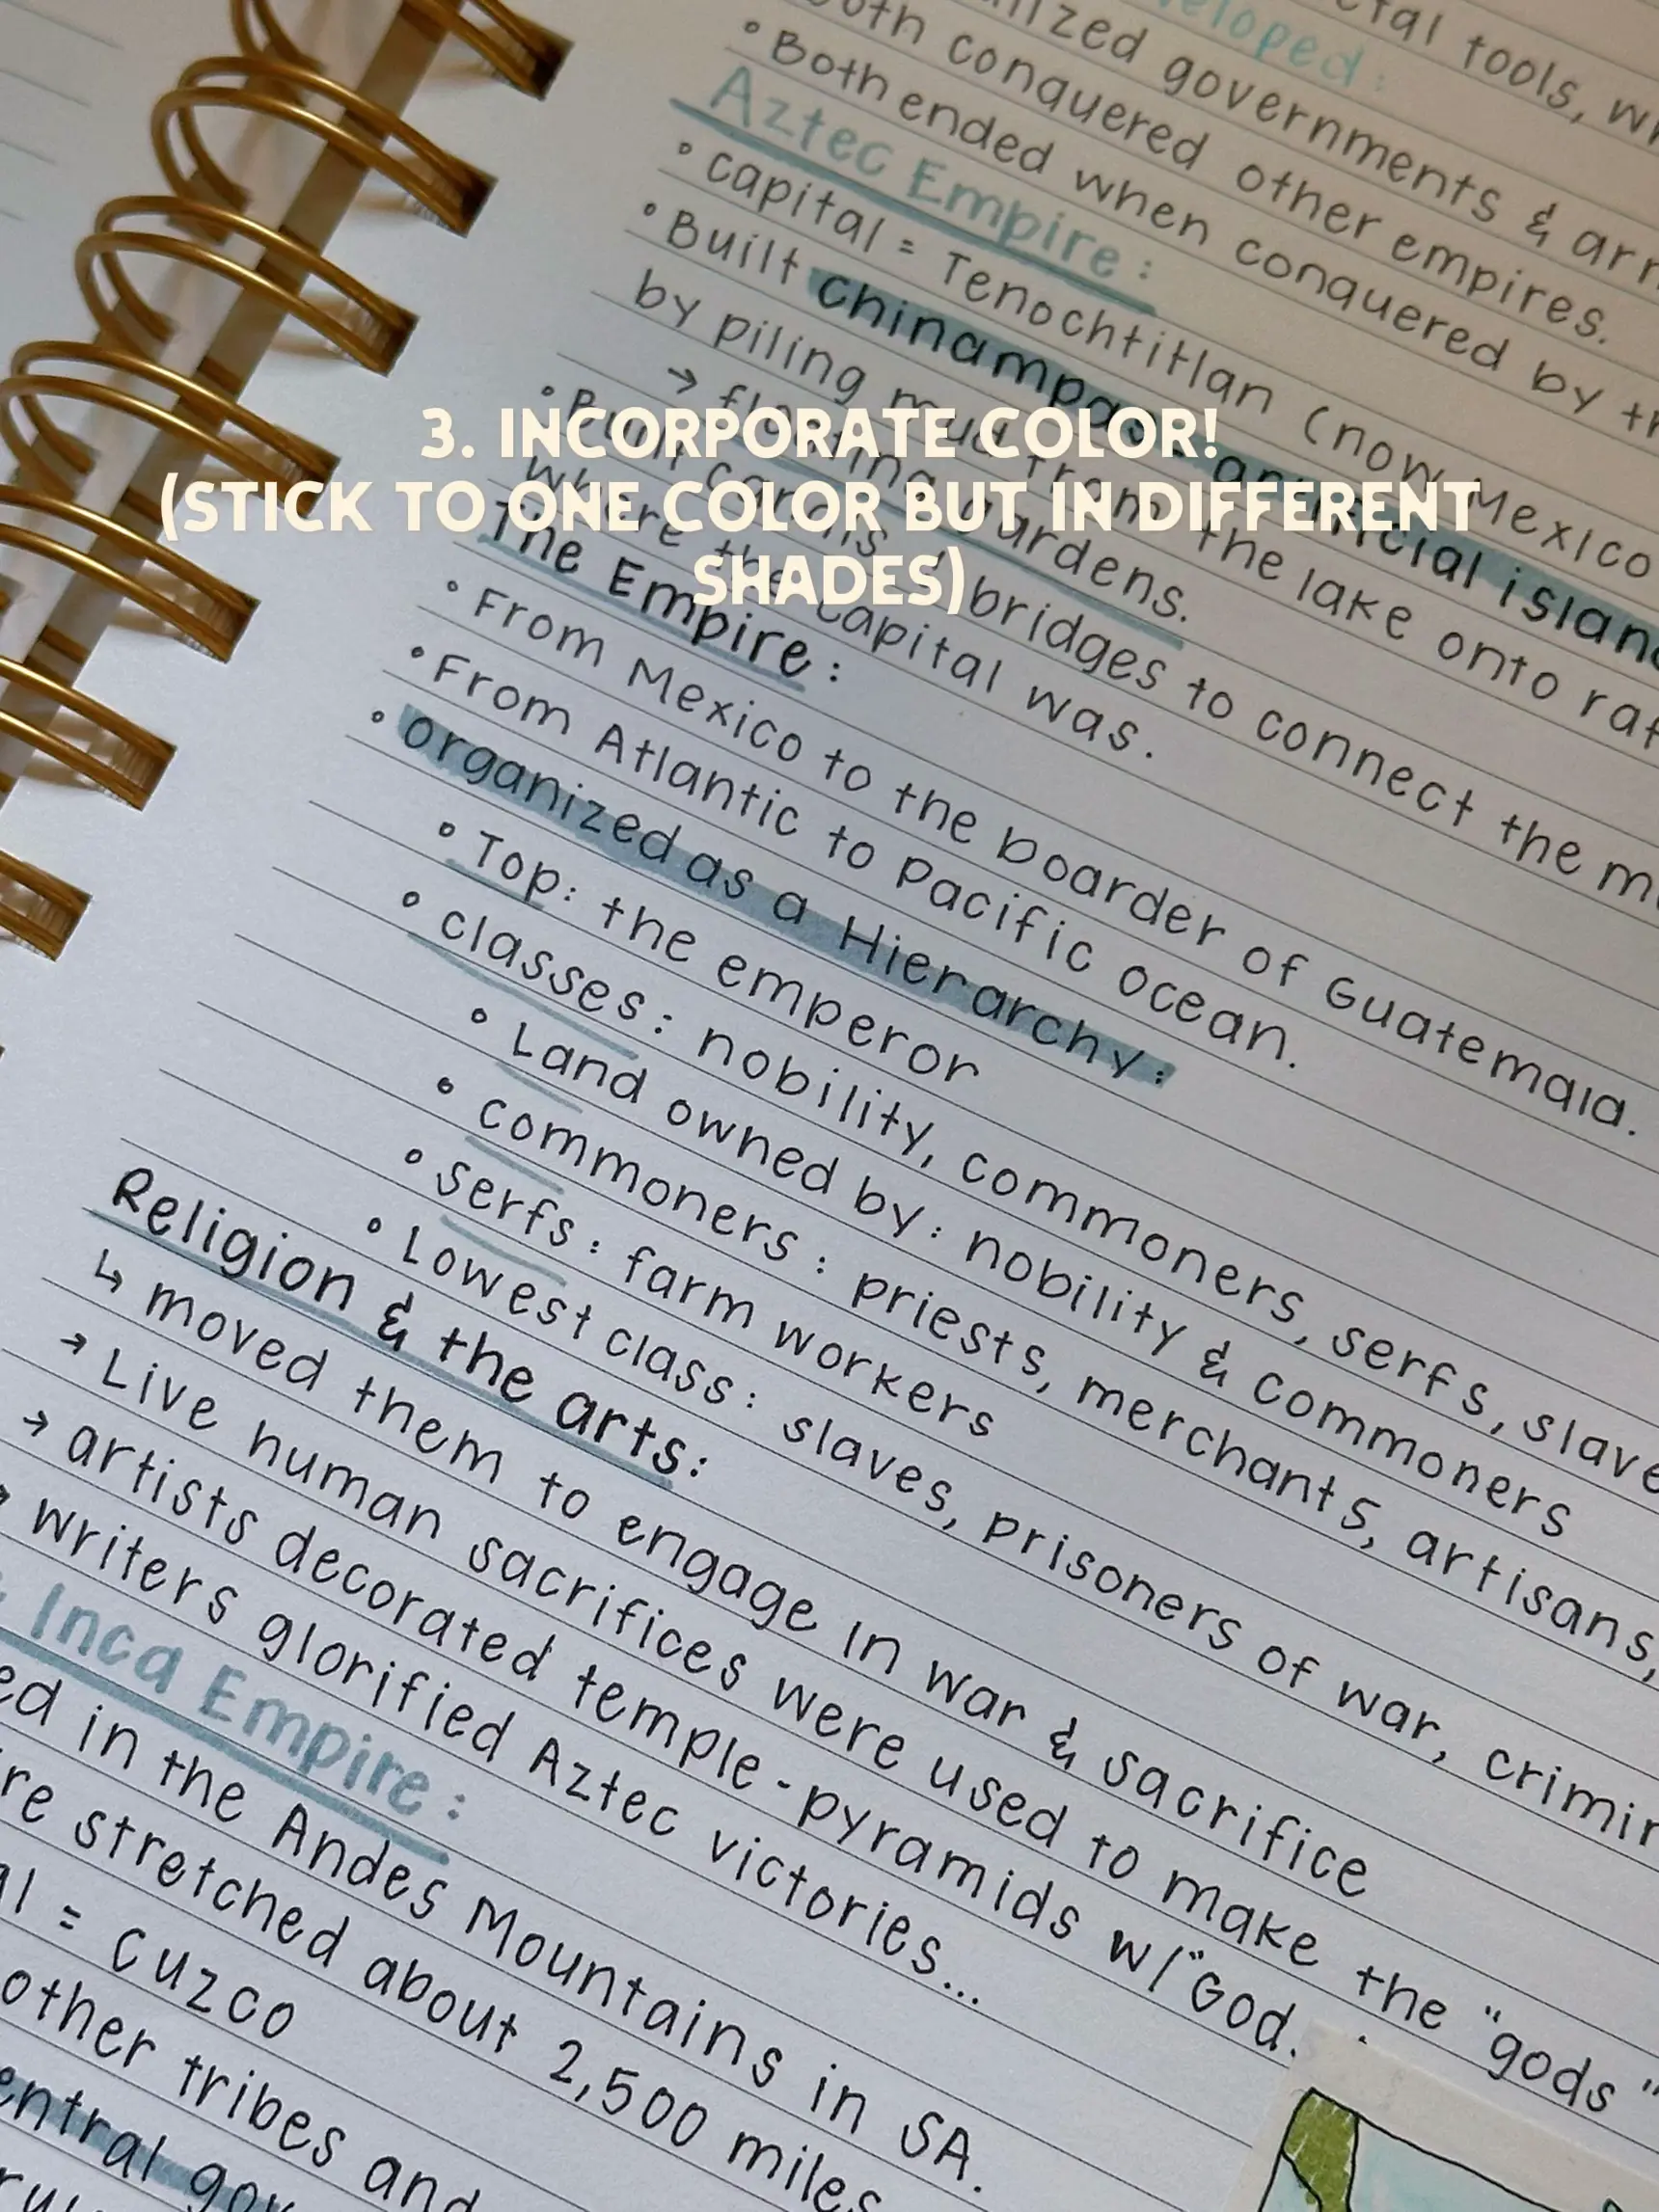 3. INCORPORATE COLOR!
(STICK TO ONE COLOR BUT IN DIFFERENT
SHADES)
tools,
governments &
conquered other empires.
• Both ended when conquered by
Aztec Empire:
• capital = Tenochtitlan (now Mexico
• Built chinampas - artificial
by piling mud from the lake onto
→ floating gardens.
• Built canals bridges to connect the
where the capital was.
The Empire:
• From Mexico to the boarder of Guatemala.
• From Atlantic to Pacific ocean.
• organized as a Hierarchy:
• Top: the emperor
• classes: nobility, commoners, serfs,
• Land owned by: nobility & commoners
• commoners: priests, merchants, artisans,
• serfs: farm workers
• Lowest class: slaves, prisoners of war,
Religion & the arts:
↳ moved them to engage in war & sacrifice
→ Live human sacrifices were used to make the "gods"
→ artists decorated temple-pyramids w/"God.
→ writers glorified Aztec victories...
Inca Empire:
in the Andes Mountains in SA.
stretched about 2,500 miles
= cuzco
other tribes and